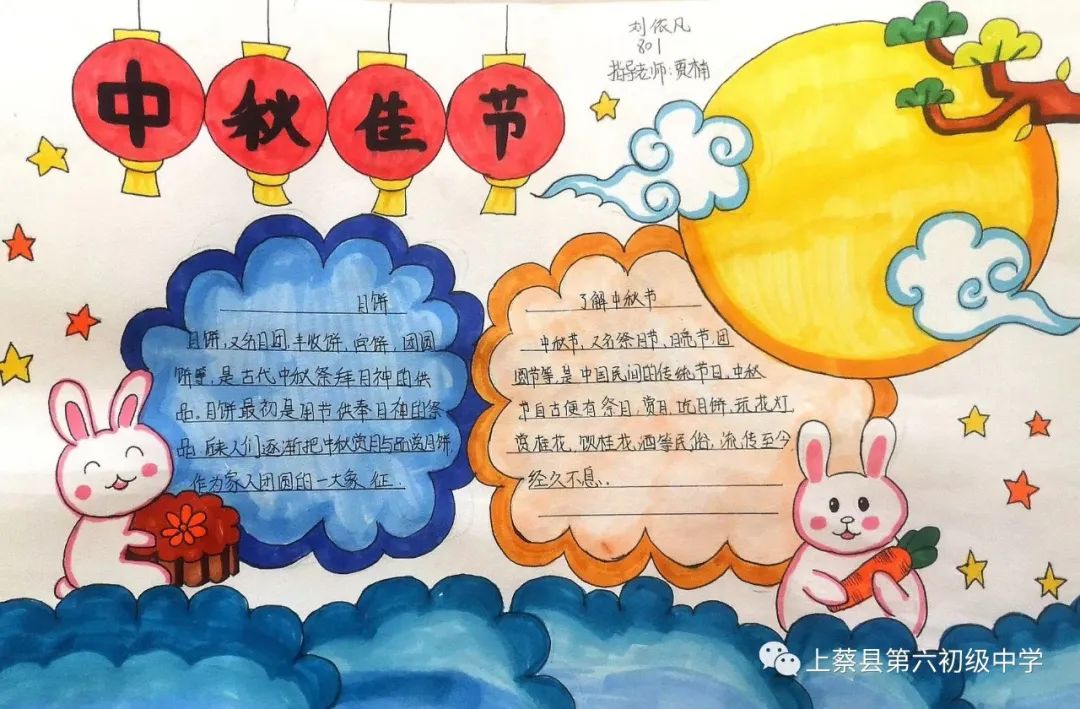 中秋佳节
刘依凡
801
指导老师:贾楠
月饼
月饼,又名月团、丰收饼、宫饼、团圆
饼等,是古代中秋祭拜月神的供
品。月饼最初是用节供奉月神的祭
品,后来人们逐渐把中秋赏月与品尝月饼,
作为家人团圆的一大象征.
了解中秋节
中秋节,又名祭月节、月亮节、团
圆节等,是中国民间的传统节日。中秋
节自古便有祭月、赏月、吃月饼、玩花灯,
赏桂花、饮桂花酒等民俗,流传至今
经久不息.
上蔡县第六初级中学